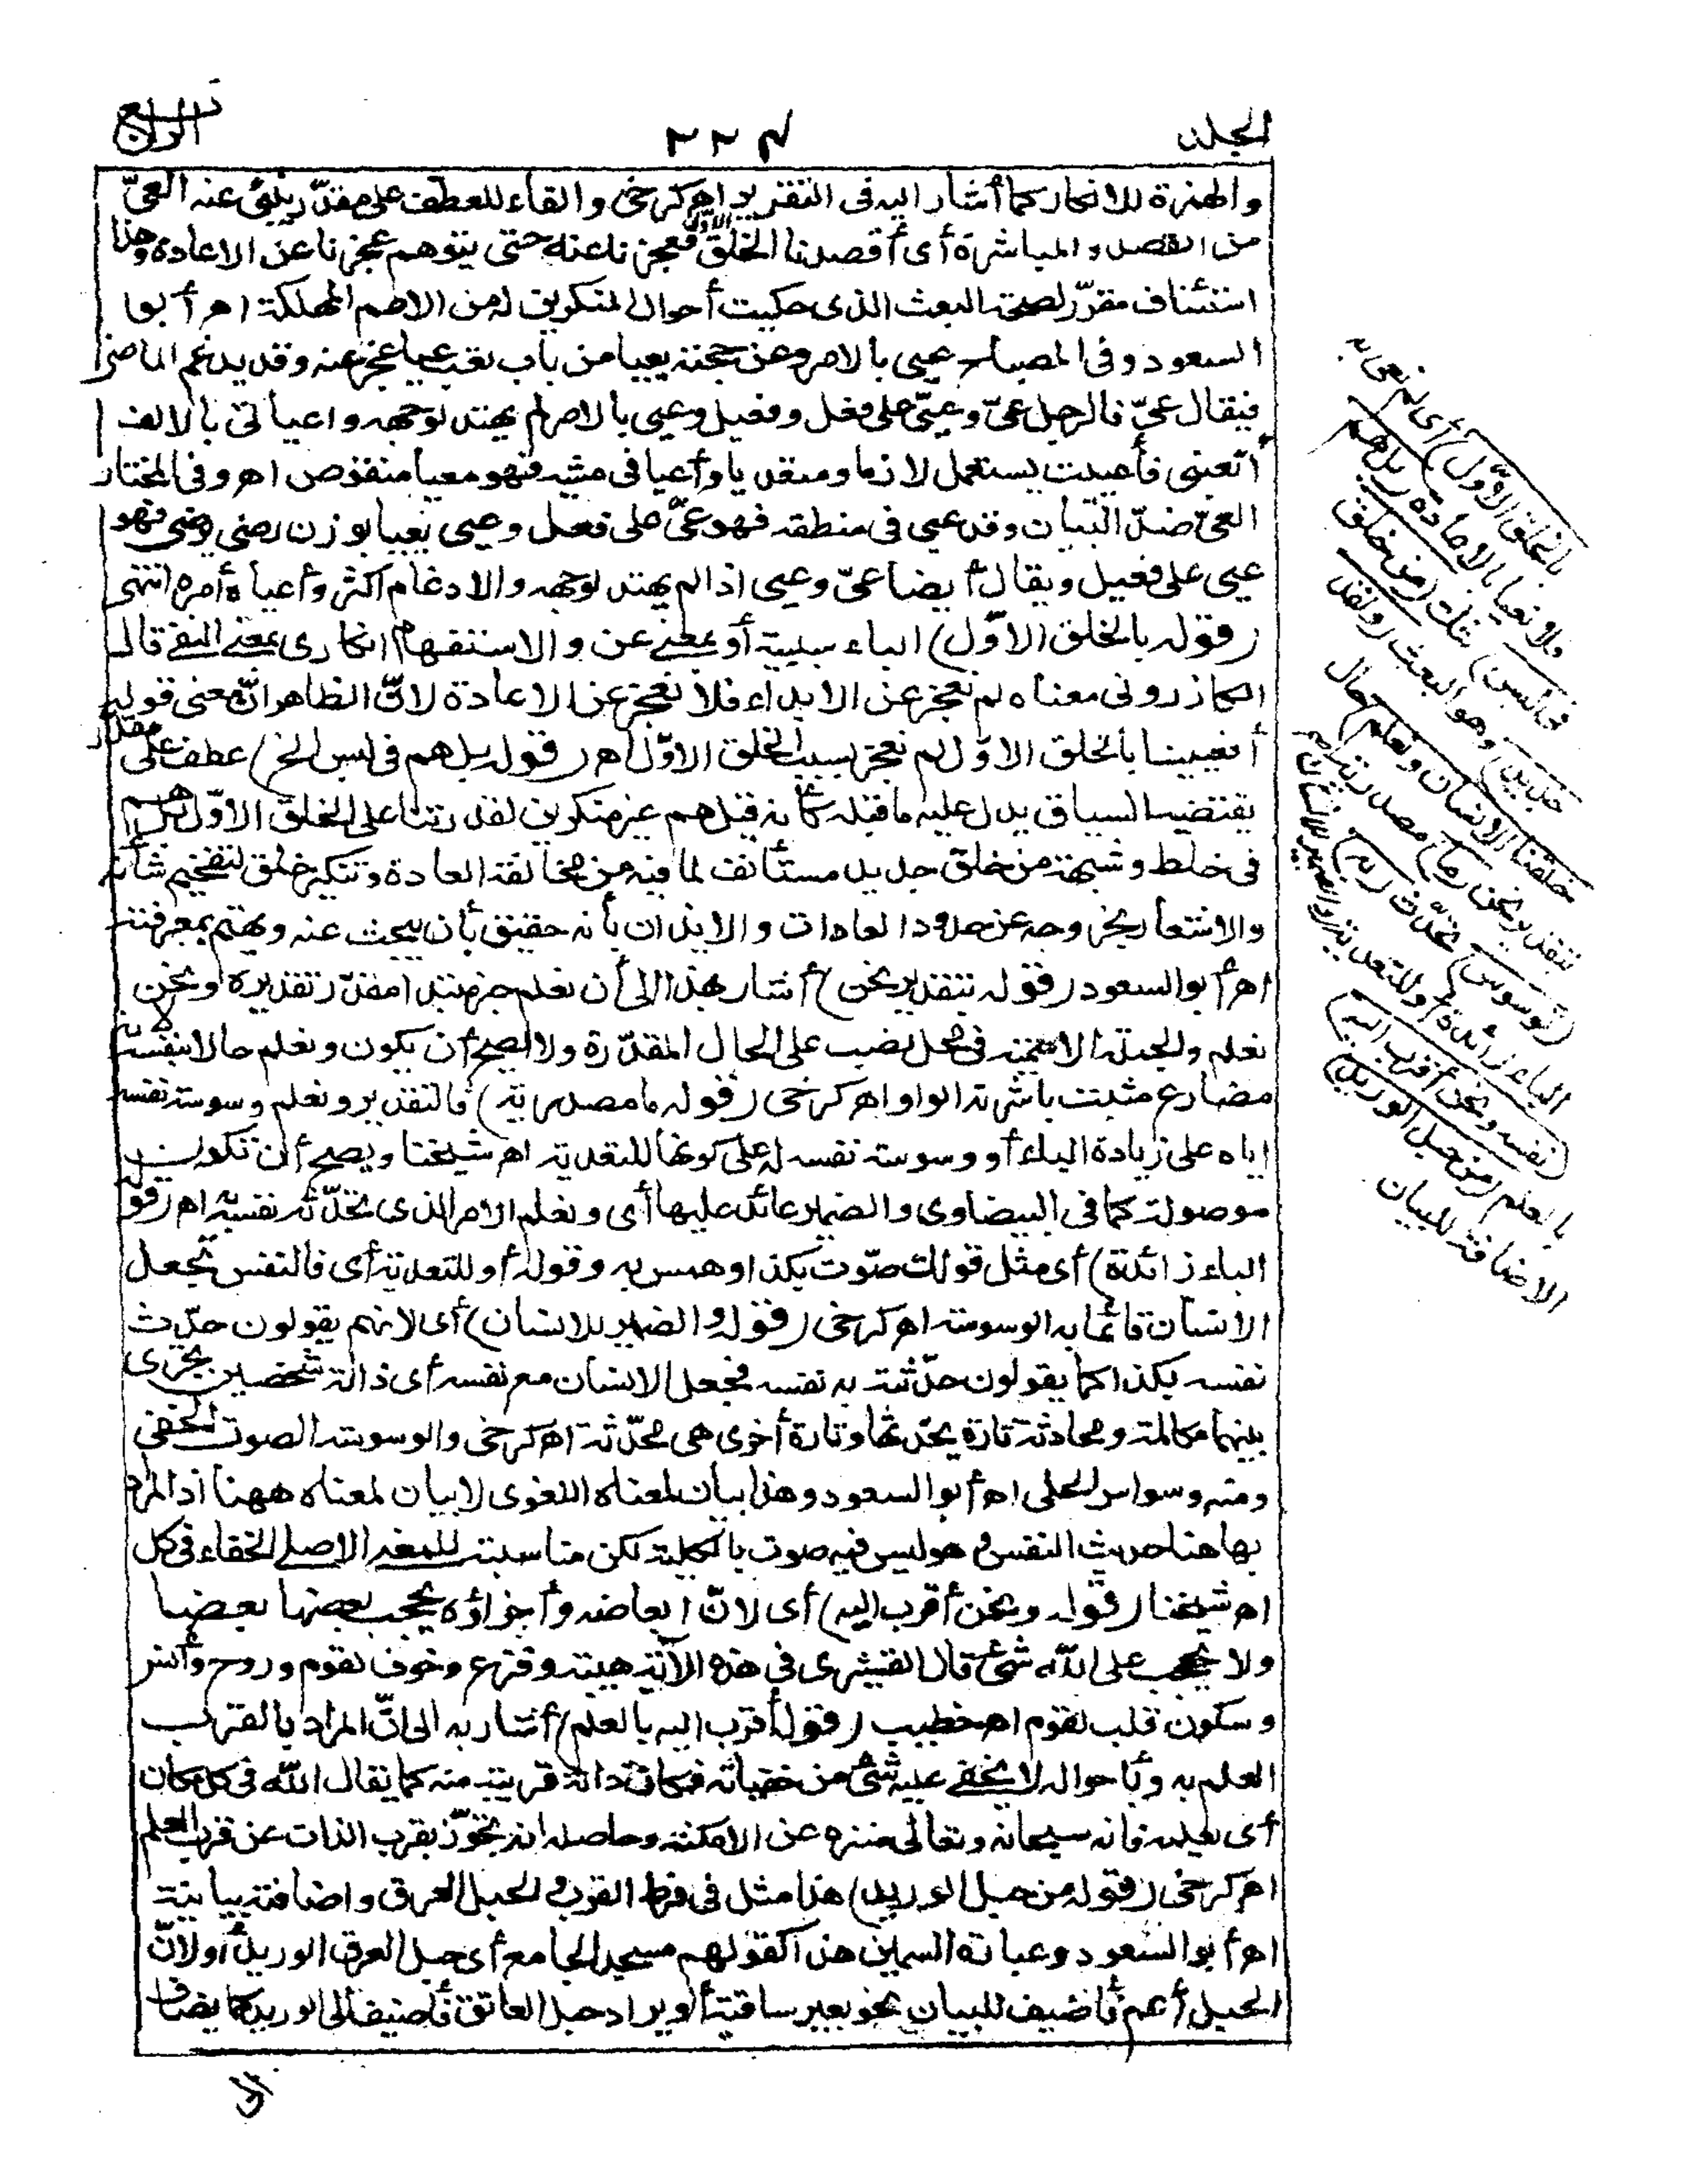 الجلد
٢٢٧
الرابع
والهمزة للانكار كما أشار اليه فى التقرير اهـ كرخى والفاء للعطف على مقدّر ينبئ عنه العىّ
من القصد والمباشرة أى أقصدنا الخلق الاوّل فعجزنا عنه حتى يتوهم عجزنا عن الاعادة وهذا
استئناف مقرّر لصحة البعث الذى حكيت أحوال المنكرين له من الامم المهلكة اهـ أبو
السعود وفى المصباح عيى بالامر وعن حجته يعيا من باب تعب عيا عجز عنه وقد يدغم الماضى
فيقال عىّ فالرجل عىّ وعيىّ على فعل وفعيل وعيى بالامر لم يهتد لوجهه واعيانى بالالف
أتعبنى فأعييت يستعمل لازما ومتعديا وأعيا فى مشيه فهو معيا منقوص اهـ وفى المختار
العىّ ضدّ البيان وقد عيى فى منطقه فهو عىّ على فعل وعيى يعيا بوزن رضى يرضى فهو
عيى على فعيل ويقال أيضا عىّ وعيى اذا لم يهتد لوجهه والادغام أكثر وأعياه أمره انتهى
(قوله بالخلق الاوّل) الباء سببية أو بمعنى عن والاستفهام انكارى بمعنى النفى قال
الكازرونى معناه لم نعجز عن الابداء فلا نعجز عن الاعادة لانّ الظاهر انّ معنى قوله
أفعيينا بالخلق الاوّل لم نعجز بسبب الخلق الاوّل اهـ (قوله بل هم فى لبس الخ) عطف على مقدّر
يقتضيه السياق يدل عليه ما قبله كأنه قيل هم غير منكرين لقدرتنا على الخلق الاوّل بل هم
فى خلط وشبهة من خلق جديد مستأنف لما فيه من مخالفة العادة وتنكير خلق لتفخيم شأنه
والاشعار بخروجه عن حدود العادات والايذان بأنه حقيق بأن يبحث عنه ويهتم بمعرفته
اهـ أبو السعود (قوله بتقدير نحن) أشار بهذا الى أن نعلم خبر مبتدا مقدّر تقديره ونحن
نعلم والجملة الاسمية فى محل نصب على الحال المقدّرة ولا يصح أن يكون ونعلم حالا بنفسه لانه
مضارع مثبت باشرته الواو اهـ كرخى (قوله ما مصدرية) فالتقدير ونعلم وسوسة نفسه
اياه على زيادة الباء أو وسوسة نفسه له على كونها للتعدية اهـ شيخنا ويصح أن تكون
موصولة كما فى البيضاوى والضمير عائد عليها أى ونعلم الامر الذى تحدّثه نفسه به اهـ (قوله
الباء زائدة) أى مثل قولك صوّت بكذا وهمس به وقوله أو للتعدية أى فالنفس تجعل
الانسان قائما به الوسوسة اهـ كرخى (قوله والضمير للانسان) أى لانهم يقولون حدّث
نفسه بكذا كما يقولون حدّثته به نفسه فجعل الانسان مع نفسه أى ذاته شخصين تجرى
بينهما مكالمة ومحادثة تارة يحدّثها وتارة أخرى هى تحدّثه اهـ كرخى والوسوسة الصوت الخفى
ومنه وسواس الحلى اهـ أبو السعود وهذا بيان لمعناه اللغوى لا بيان لمعناه ههنا اذ المراد
بها هنا حديث النفس وهو ليس فيه صوت بالكلية لكن مناسبته للمعنى الاصلى الخفاء فى كل
اهـ شيخنا (قوله ونحن أقرب اليه) أى لانّ أبعاضه وأجزاؤه يحجب بعضها بعضا
ولا يحجب على الله شئ قال القشيرى فى هذه الآية هيبة وفزع وخوف لقوم وروح وأنس
وسكون قلب لقوم اهـ خطيب (قوله أقرب اليه بالعلم) أشار به الى انّ المراد بالقرب
العلم به وبأحواله لا يخفى عليه شئ من خفياته فكان ذاته قريبة منه كما يقال الله فى كل مكان
أى بعلمه فانه سبحانه وتعالى منزه عن الامكنة وحاصله انه تجوّز بقرب الذات عن قرب العلم
اهـ كرخى (قوله من حبل الوريد) هذا مثل فى فرط القرب والحبل العرق واضافته بيانية
اهـ أبو السعود وعبارة السمين هذا كقولهم مسجد الجامع أى حبل العرق الوريد أو لانّ
الحبل أعم فأضيف للبيان نحو بعير سانية أو يراد حبل العاتق فأضيف الى الوريد كما يضاف
الى
بالخلق الاوّل) أى لم نعى به
ولا نعيا بالاعادة (بل هم
فى لبس) شك (من خلق
جديد) وهو البعث (ولقد
خلقنا الانسان ونعلم) حال
بتقدير نحن (ما) مصدرية
(توسوس) تحدّث (به)
الباء زائدة أو للتعدية والضمير للانسان
(نفسه ونحن أقرب اليه)
بالعلم (من حبل الوريد)
الاضافة للبيان